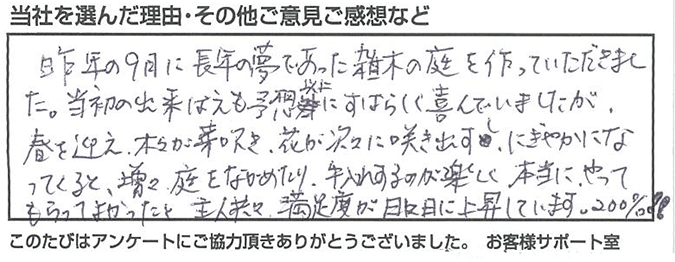 当社を選んだ理由・その他ご意見ご感想など
昨年の9月に長年の夢であった雑木の庭を作っていただきまし
た。当初の出来ばえも予想以上にすばらしく喜んでいましたが、
春を迎え、木々が芽吹き、花が次々に咲き出し、にぎやかにな
ってくると、増々庭をながめたり、手入れするのが楽しく本当に、やって
もらってよかったと主人共々、満足度が日に日に上昇しています。200%!!
このたびはアンケートにご協力頂きありがとうございました。 お客様サポート室